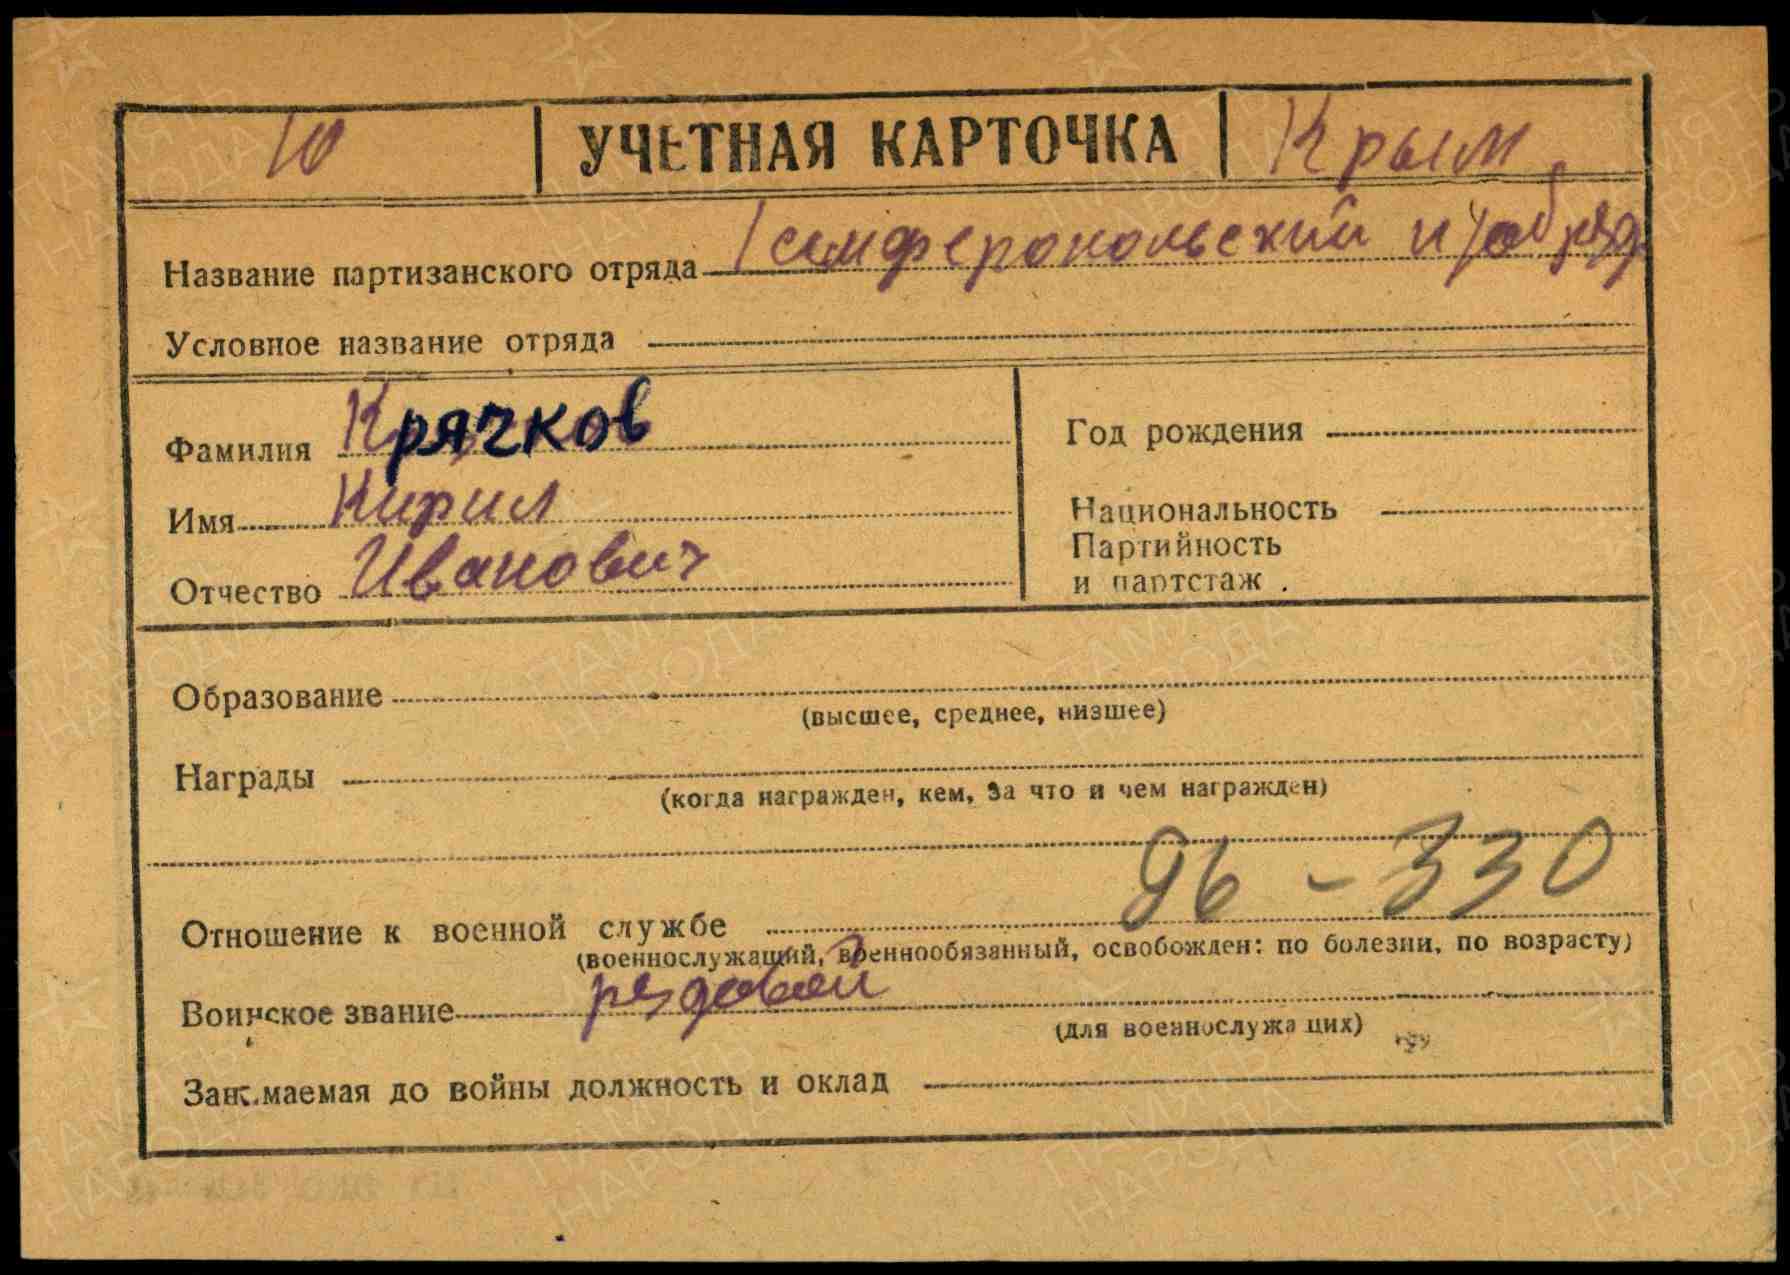 10 УЧЕТНАЯ КАРТОЧКА Крым
Название партизанского отряда 1 симферопольский п/отряд
Условное название отряда
Фамилия Крячков
Имя Кирил
Отчество Иванович
Год рождения
Национальность
Партийность
и партстаж .
Образование
(высшее, среднее, низшее)
Награды
(когда награжден, кем, за что и чем награжден)
96 - 330
Отношение к военной службе
(военнослужащий, военнообязанный, освобожден: по болезни, по возрасту)
Воинское звание рядовой
(для военнослужащих)
Занимаемая до войны должность и оклад
ПАМЯТЬ НАРОДА